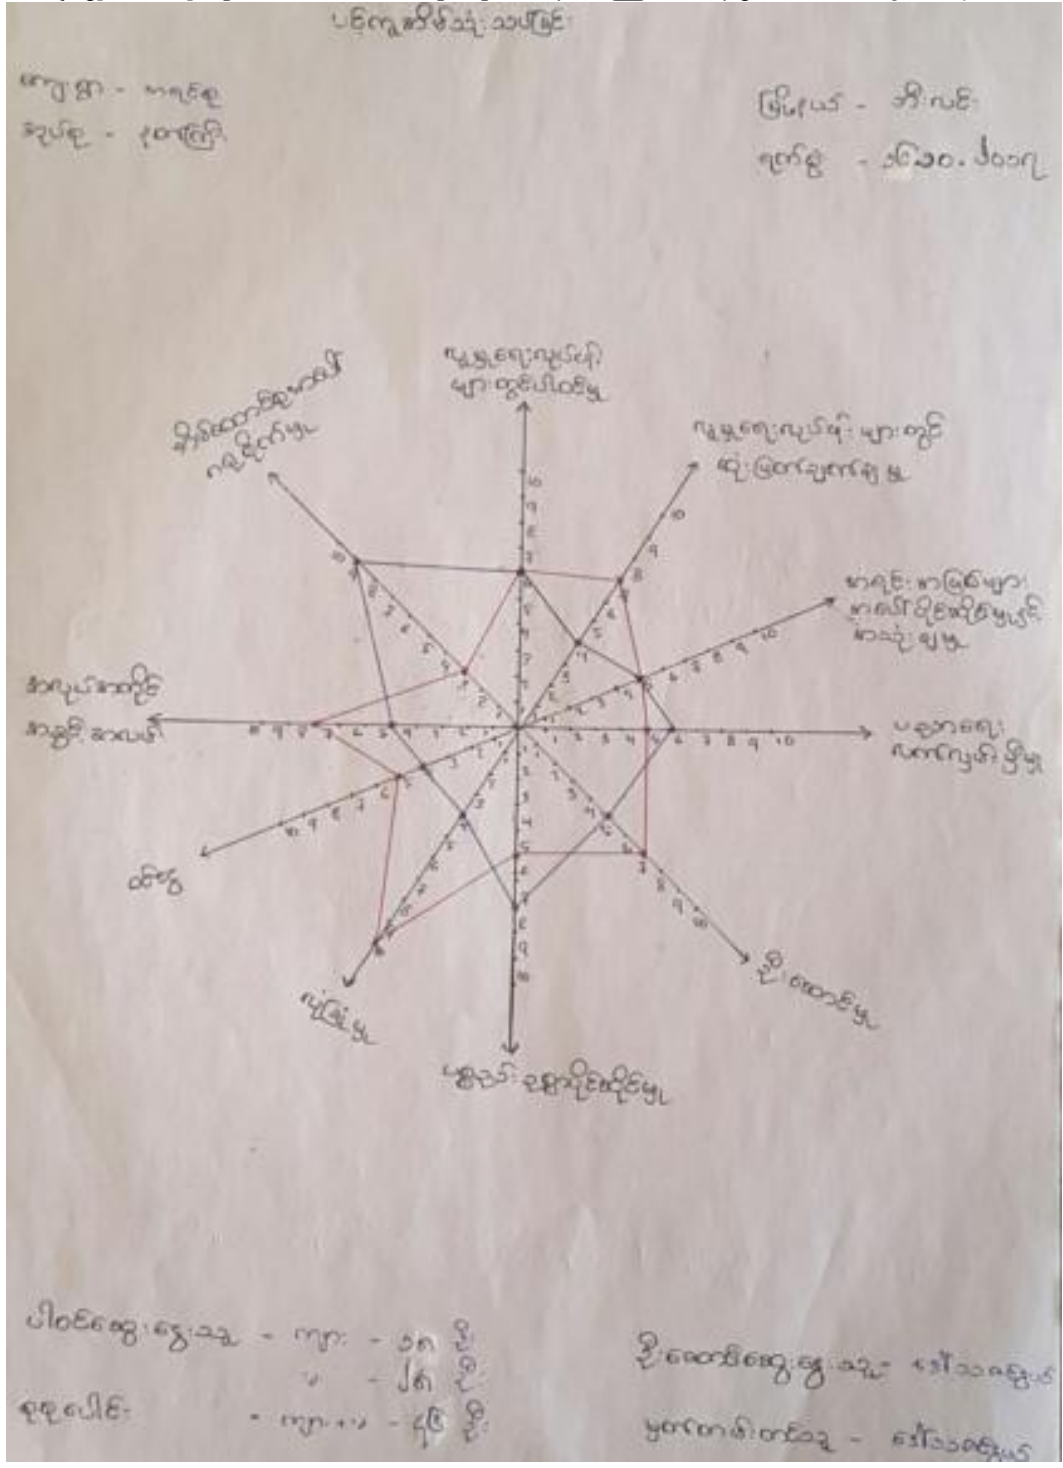 ပင့်ကူအိမ်သုံးသပ်ခြင်း
ကျေးရွာ - အရင်စု
အုပ်စု -
မြို့နယ် - ဘီးလင်း
ရက်စွဲ - ၁၆.၁၀.၂၀၁၇
လူမှုရေးလုပ်ငန်း
များတွင်ပါဝင်မှု
လူမှုရေးလုပ်ငန်းများတွင်
ဆုံးဖြတ်ချက်ချမှု
အရင်းအမြစ်များ
အပေါ်ပိုင်ဆိုင်မှုနှင့်
အသုံးချမှု
ပညာရေး
လက်လှမ်းမှီမှု
ဦးဆောင်မှု
ပစ္စည်းဥစ္စာပိုင်ဆိုင်မှု
လုံခြုံမှု
ဝင်ငွေ
အလုပ်အကိုင်
အခွင့်အလမ်း
အိမ်ထောင်စုအပေါ်
ဂရုစိုက်မှု
ပါဝင်ဆွေးနွေးသူ - ကျား - ၁၈ ဦး
မ - ၂၈ ဦး
စုစုပေါင်း - ကျား+မ - ၄၆ ဦး
ဦးဆောင်ဆွေးနွေးသူ - ဒေါ်သဇင်နွယ်
မှတ်တမ်းတင်သူ - ဒေါ်သဇင်နွယ်